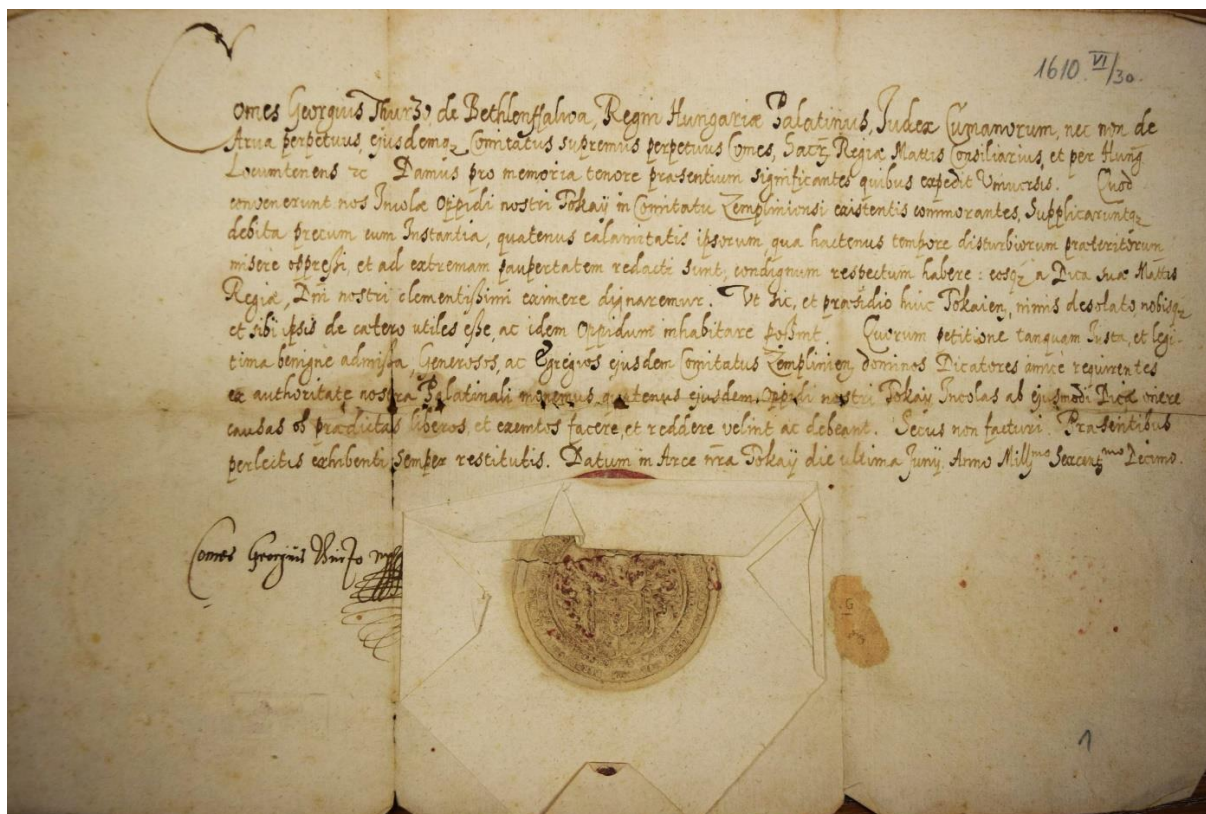 1610. VI/30.
Comes Georgius Thurzo, de Bethlenffalwa, Regni Hungariæ Palatinus, Judex Cumanorum, nec non de
Arua perpetuus, ejusdemq₃ Comitatus supremus perpetuus Comes, Sacr. Regiæ Mattis Consiliarius, et per Hung
Locumtenens &c Damus pro memoria tenore præsentium significantes quibus expedit Vniuersis. Quod
convenerunt nos Incolæ Oppidi nostri Tokaÿ in Comitatu Zempliniensi existentis commorantes, Supplicaruntq₃
debita precum cum Instantia, quatenus calamitatis ipsorum, qua hactenus tempore disturbiorum præteritorum
misere oppressi, et ad extremam paupertatem redacti sunt, condignum respectum habere: eosq₃ a Dica suæ Mattis
Regiæ, Dni nostri clementissimi eximere dignaremur. Vt sic, et præsidio huic Tokaien, nimis desolato nobisq₃
et sibi ipsis de cætero utiles esse, ac idem Oppidum inhabitare possint. Quorum petitione tanquam Iusta, et legi-
tima benigne admissa, Generosos, ac Egregios ejusdem Comitatus Zemplinien, dominos Dicatores amice requirentes
ex authoritate nostra Palatinali monemus, quatenus ejusdem Oppidi nostri Tokaÿ Incolas ab ejusmodi Dicæ onere
causas ob prædictas liberos, et exemtos facere, et reddere velint ac debeant. Secus non facturi. Præsentibus
perlectis exhibenti semper restitutis. Datum in Arce nra Tokaÿ die ultima Junÿ. Anno Mill^mo Sexcent^mo Decimo.
Comes Georgius Thurzo mpp
1